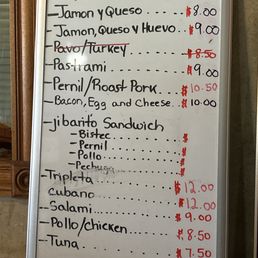 -Jamon y Queso..... $8.00
-Jamon, Queso y Huevo... $9.00
-Pavo/Turkey...... $8.50
-Pastrami........ $9.00
-Pernil/Roast Pork.. $10.50
-Bacon, Egg and Cheese.. $10.00
-jibarito Sandwich
-Bistec........ $
-Pernil........ $
-Pollo........ $
-Pechuga....... $
-Tripleta........ $12.00
cubano......... $12.00
-Salami........ $9.00
-Pollo/chicken..... $8.50
-Tuna.......... $7.50